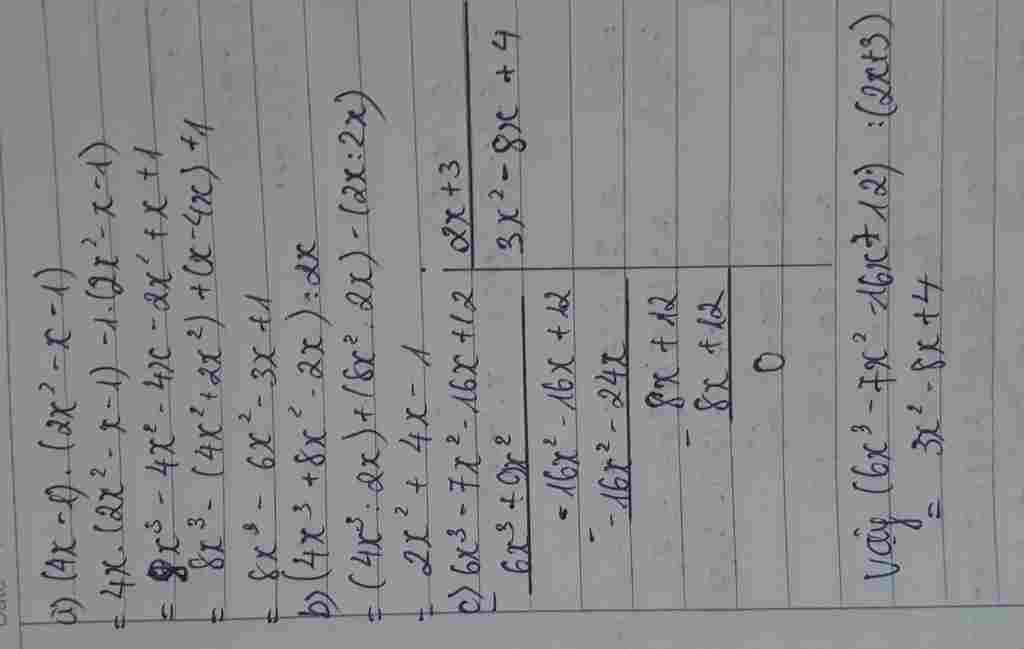 a) (4x - 1). (2x² - x - 1)
= 4x. (2x² - x - 1) - 1. (2x² - x - 1)
= 8x³ - 4x² - 4x - 2x² + x + 1
= 8x³ - (4x² + 2x²) + (x - 4x) + 1
= 8x³ - 6x² - 3x + 1
b) (4x³ + 8x² - 2x) : 2x
= (4x³ : 2x) + (8x² : 2x) - (2x : 2x)
= 2x² + 4x - 1
c) 6x³ - 7x² - 16x + 12 | 2x + 3
6x³ + 9x² | 3x² - 8x + 4
- 16x² - 16x + 12
- - 16x² - 24x
8x + 12
- 8x + 12
0
Vậy (6x³ - 7x² - 16x + 12) : (2x + 3)
= 3x² - 8x + 4